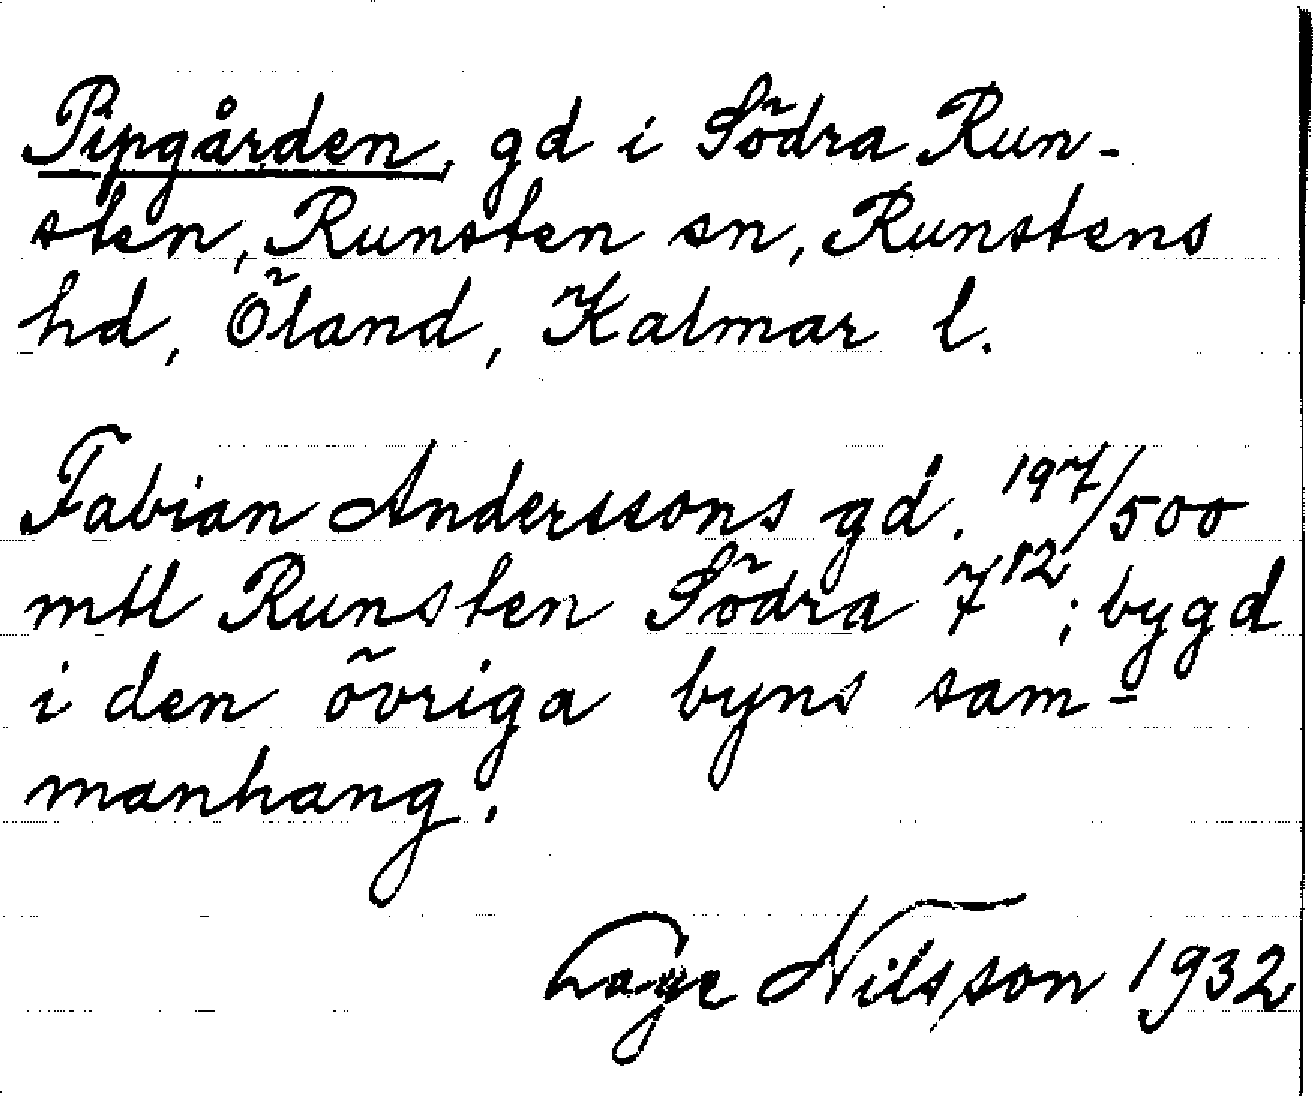 Pipgården, gd i Södra Run-
sten, Runsten sn, Runstens
hd, Öland, Kalmar l.
Fabian Anderssons gd. 197/500
mtl Runsten Södra 7¹²; bygd
i den övriga byns sam-
manhang.
Lage Nilsson 1932